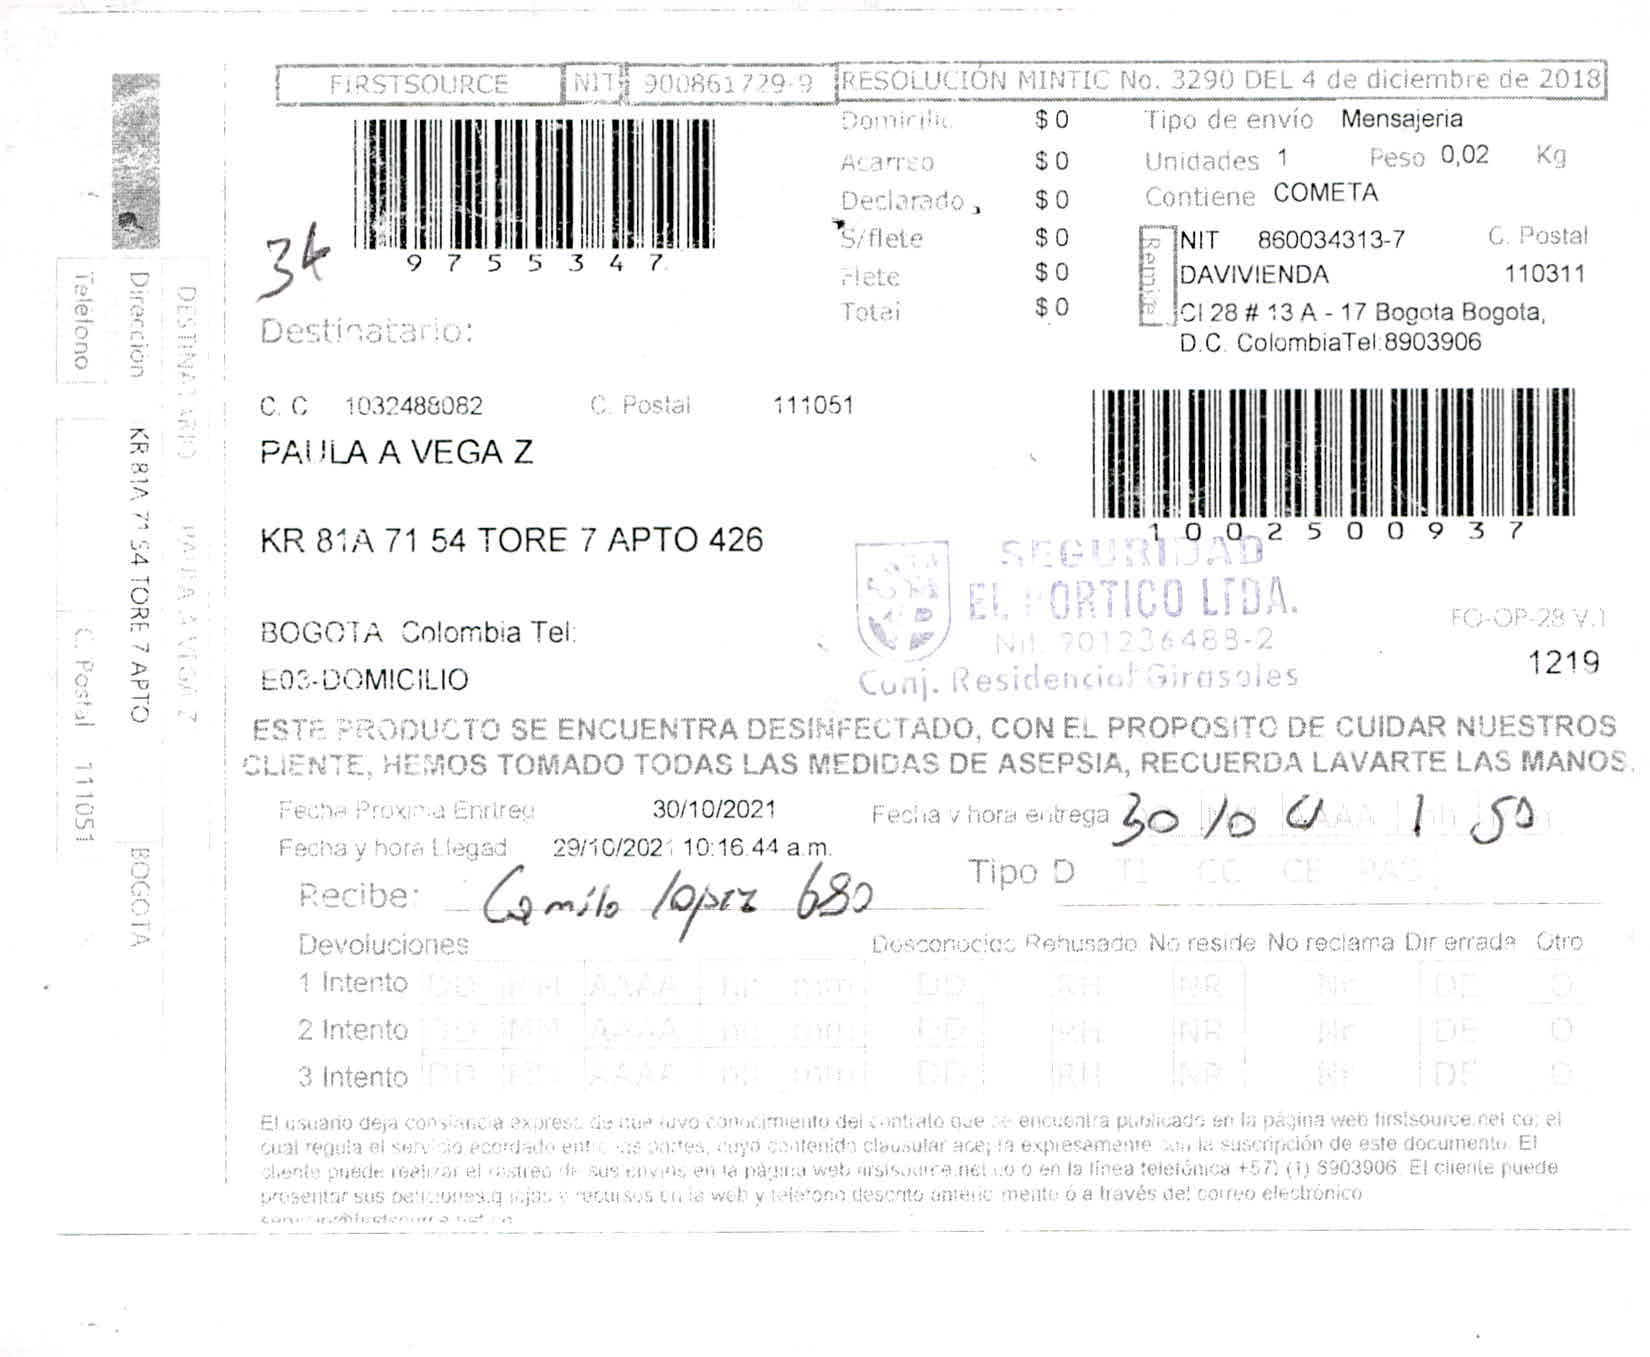 FIRSTSOURCE NIT: 900861729-9 RESOLUCIÓN MINTIC No. 3290 DEL 4 de diciembre de 2018
9755347
34
Domicilio $ 0
Acarreo $ 0
Declarado $ 0
S/flete $ 0
Flete $ 0
Total $ 0
Tipo de envío Mensajeria
Unidades 1 Peso 0,02 Kg
Contiene COMETA
NIT 860034313-7 C. Postal
DAVIVIENDA 110311
Cl 28 # 13 A - 17 Bogota Bogota,
D.C. ColombiaTel:8903906
Destinatario:
C. C 1032488082 C. Postal 111051
PAULA A VEGA Z
KR 81A 71 54 TORE 7 APTO 426
BOGOTA Colombia Tel:
E03-DOMICILIO
1002500937
SEGURIDAD
EL PORTICO LTDA.
Nit. 901236488-2
Conj. Residencial Girasoles
FO-OP-28 V.1
1219
ESTE PRODUCTO SE ENCUENTRA DESINFECTADO, CON EL PROPOSITO DE CUIDAR NUESTROS
CLIENTE, HEMOS TOMADO TODAS LAS MEDIDAS DE ASEPSIA, RECUERDA LAVARTE LAS MANOS.
Fecha Proxima Entreg 30/10/2021 Fecha y hora entrega 30 10 1 50
Fecha y hora Llegad 29/10/2021 10:16.44 a.m.
Tipo D TI CC CE PAS
Recibe: Camilo lopez 680
Devoluciones Desconocido Rehusado No reside No reclama Dir errada Otro
1 Intento DD MM AAAA hh mm DD RH NR Nr DE O
2 Intento DD MM AAAA hh mm DD RH NR Nr DE O
3 Intento DD MM AAAA hh mm DD RH NR Nr DE O
El usuario deja constancia expresa de que tuvo conocimiento del contrato que se encuentra publicado en la página web firstsource.net.co; el
cual regula el servicio acordado entre las partes, cuyo contenido clausular acepta expresamente con la suscripción de este documento. El
cliente puede realizar el rastreo de sus envíos en la página web firstsource.net.co o en la línea telefónica +57) (1) 8903906. El cliente puede
presentar sus peticiones,quejas y recursos en la web y teléfono descrito anteriormente ó a través del correo electrónico
DESTINATARIO PAULA A VEGA Z
Dirección KR 81A 71 54 TORE 7 APTO BOGOTA
Teléfono C. Postal 111051